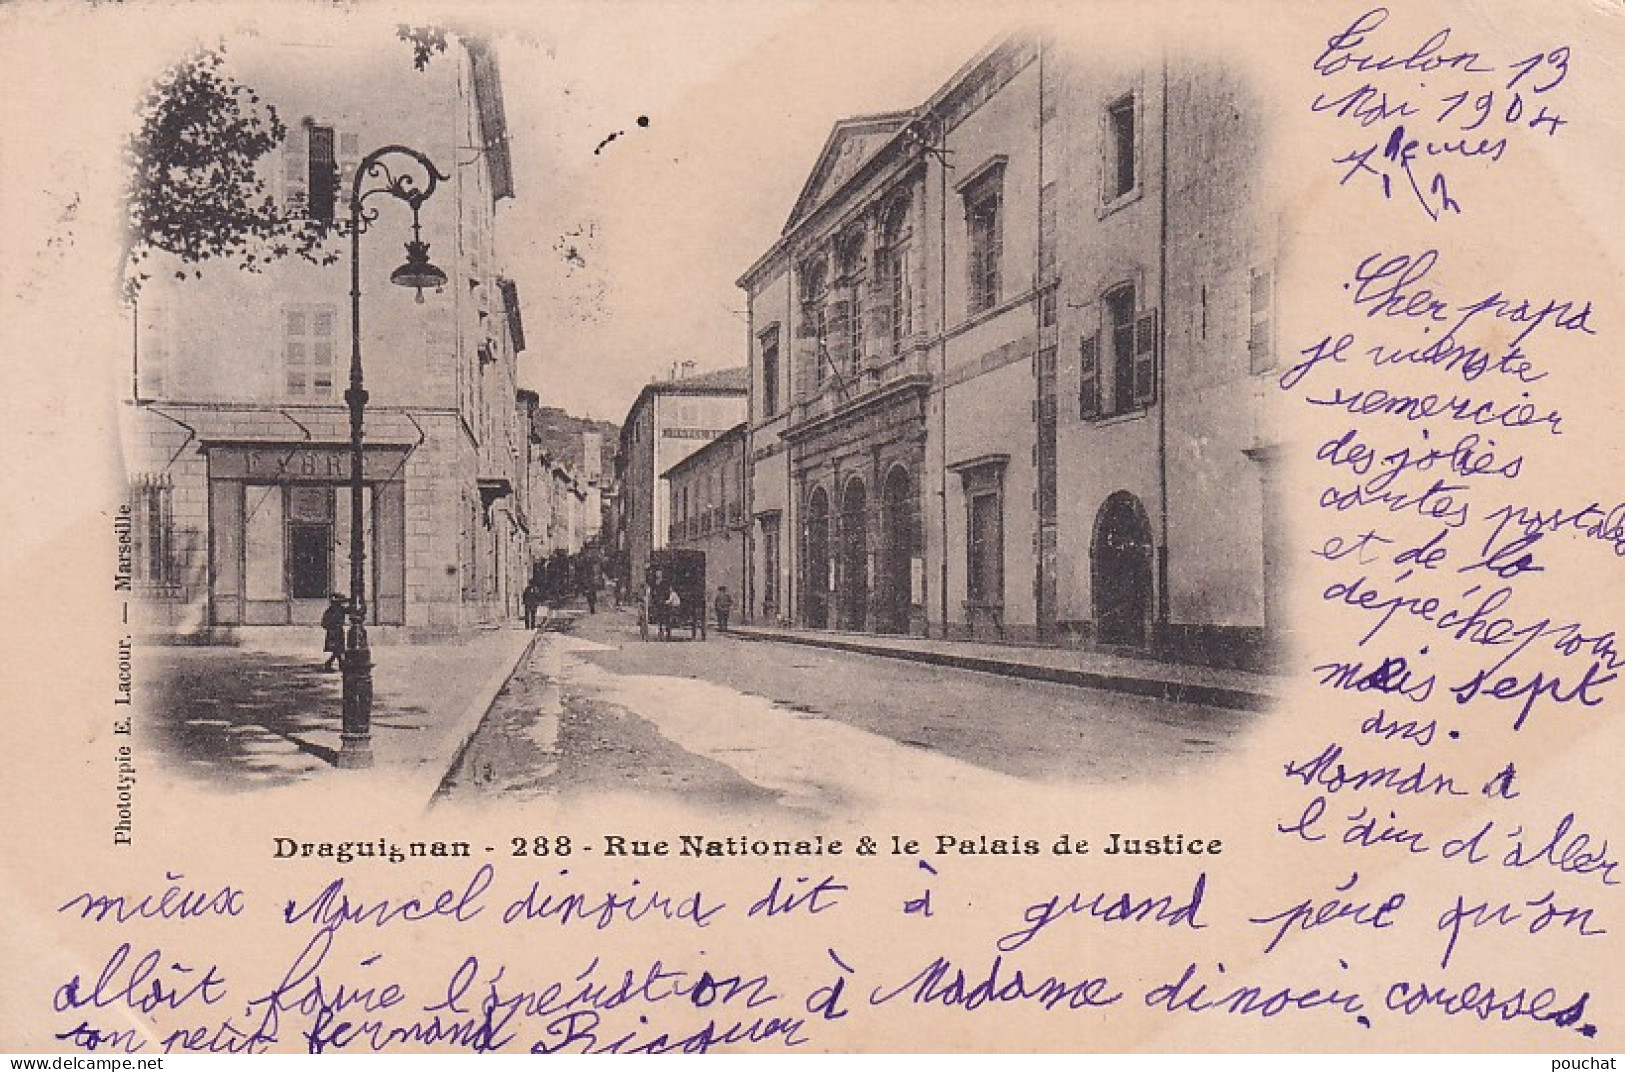 Toulon 13
Mai 1904
7 heures
1/2
Cher papa
je viens te
remercier
des jolies
cartes postales
et de la
dépéche pour
mes sept
ans.
Maman a
l'air d'aller
mieux Marcel dinoira dit à grand pére qu'on
alloit faire l'opération à Madame dinoir. caresses.
ton petit fernand Ricquer
FABRE
Phototypie E. Lacour. — Marseille
Draguignan - 288 - Rue Nationale & le Palais de Justice
pouchat